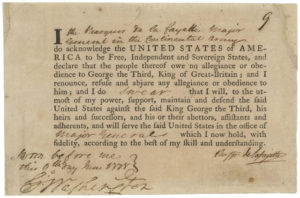 9
I the Marquis de la Fayette Major
General in the Continental Army
do acknowledge the UNITED STATES of AME-
RICA to be Free, Independent and Sovereign States, and
declare that the people thereof owe no allegiance or obe-
dience to George the Third, King of Great-Britain; and I
renounce, refuse and abjure any allegiance or obedience to
him; and I do swear that I will, to the ut-
most of my power, support, maintain and defend the said
United States against the said King George the Third, his
heirs and successors, and his or their abettors, assistants and
adherents, and will serve the said United States in the office of
Major General which I now hold, with
fidelity, according to the best of my skill and understanding.
before me
this 9th day June 1778
Go Washington